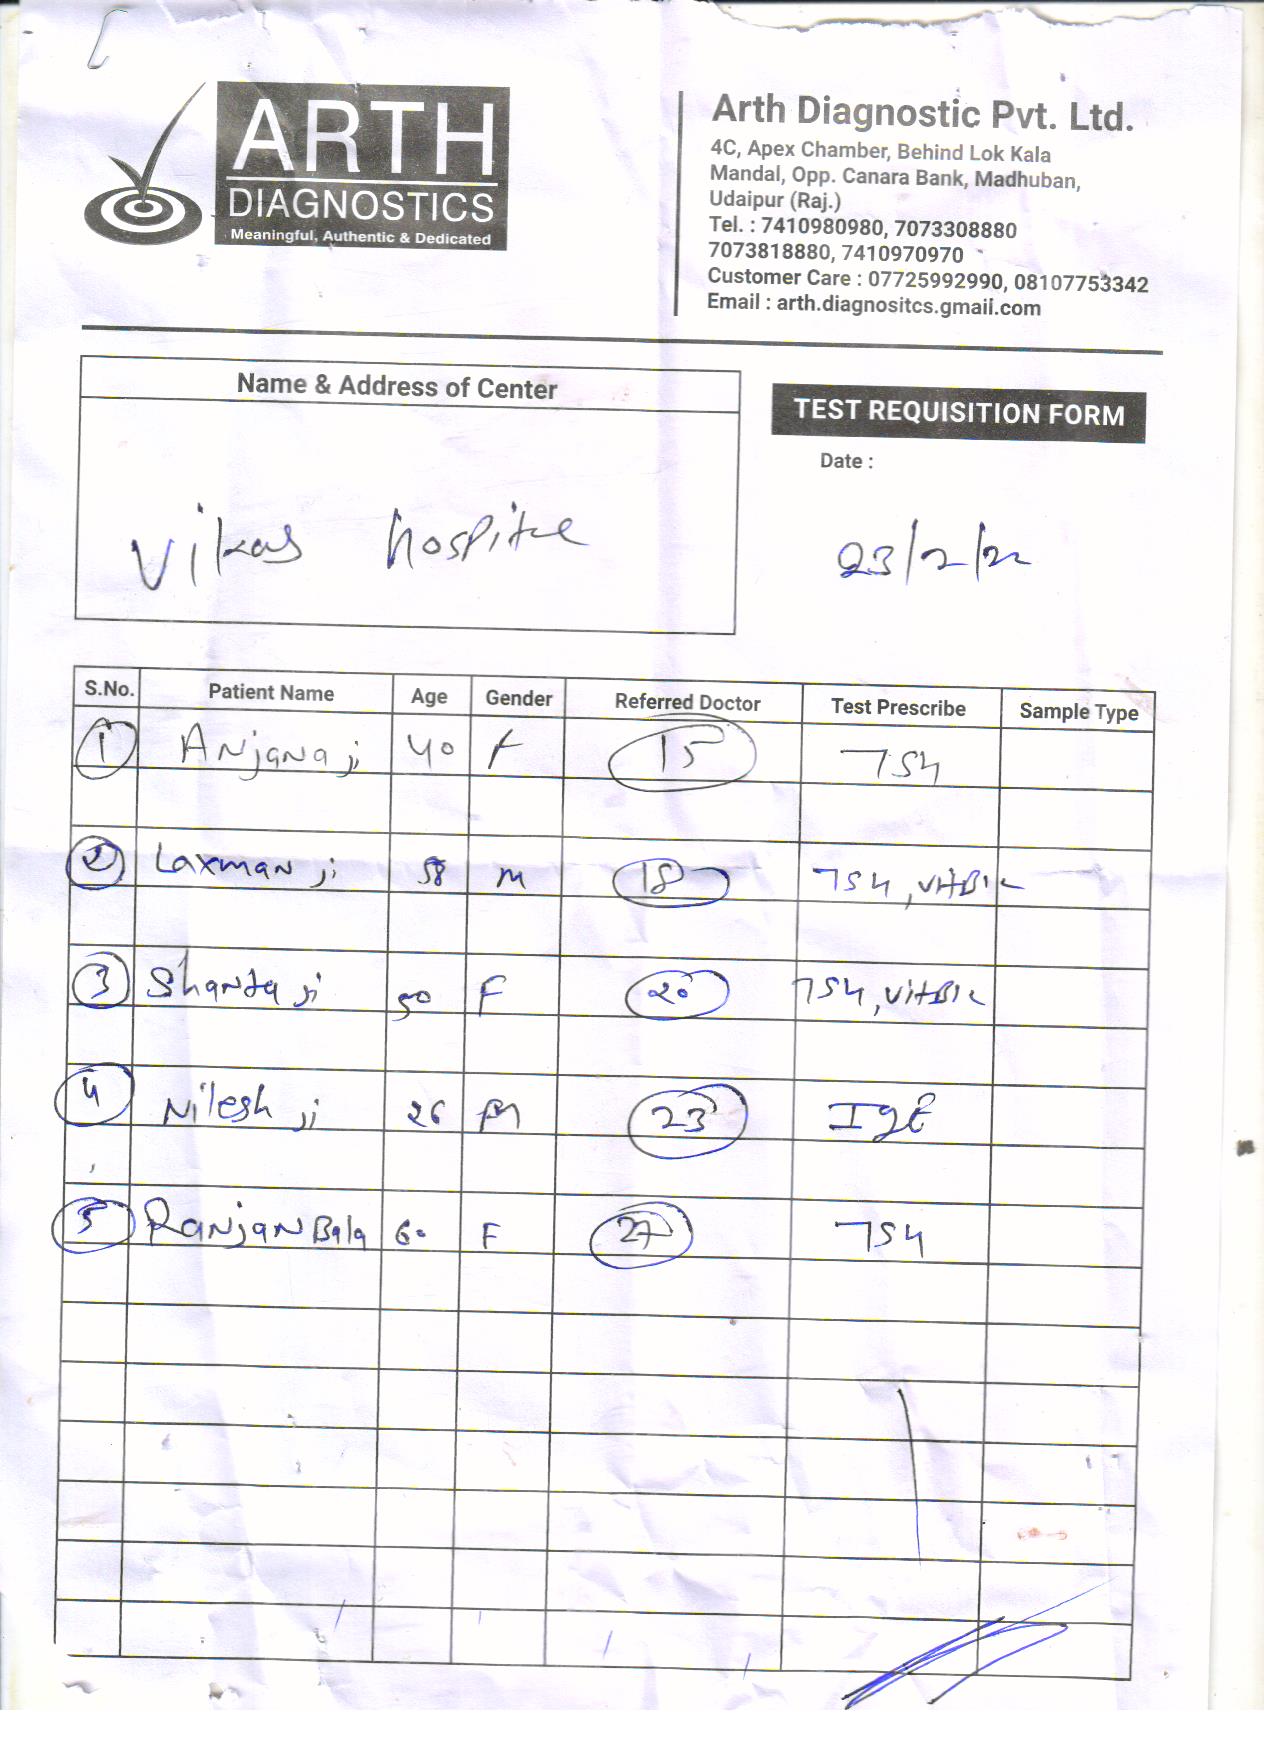 ARTH
DIAGNOSTICS
Meaningful, Authentic & Dedicated
Arth Diagnostic Pvt. Ltd.
4C, Apex Chamber, Behind Lok Kala
Mandal, Opp. Canara Bank, Madhuban,
Udaipur (Raj.)
Tel. : 7410980980, 7073308880
7073818880, 7410970970
Customer Care : 07725992990, 08107753342
Email : arth.diagnositcs.gmail.com
Name & Address of Center
Vikas hospital
TEST REQUISITION FORM
Date :
23/2/22
S.No. Patient Name Age Gender Referred Doctor Test Prescribe Sample Type
1 Anjana ji 40 F 15 TSH
2 Laxman ji 58 M 18 TSH, Vit B12
3 Shanta ji 50 F 20 TSH, Vit B12
4 Nilesh ji 26 M 23 IgE
5 Ranjan Bala 60 F 27 TSH